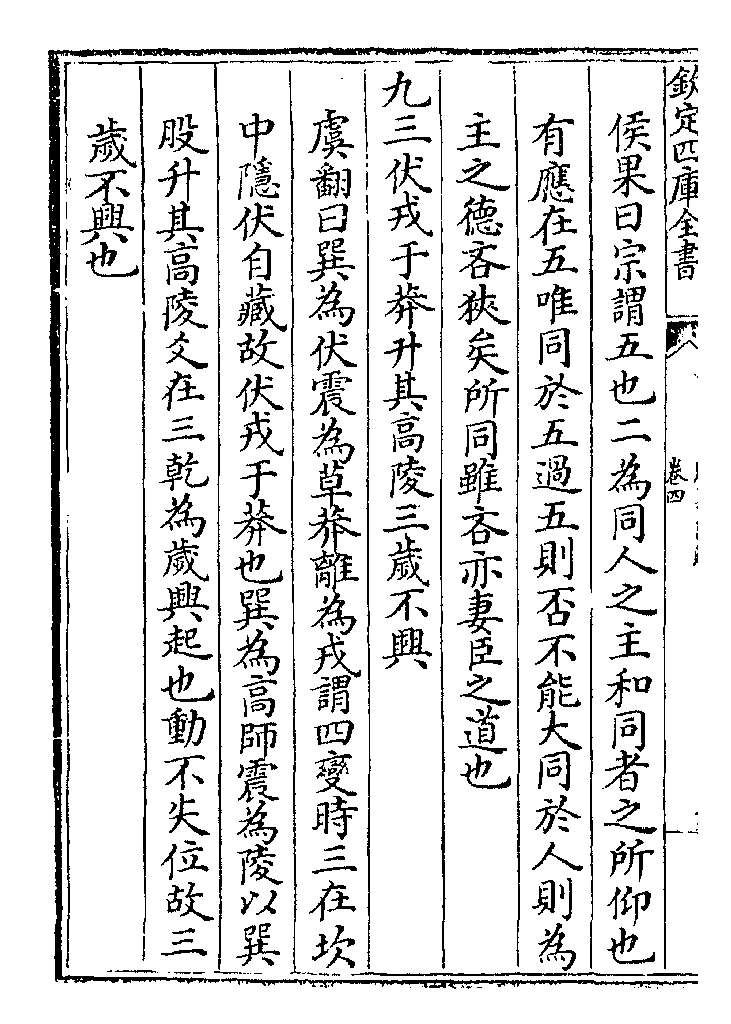 欽定四庫全書
卷四
侯果曰宗謂五也二為同人之主和同者之所仰也
有應在五唯同於五過五則否不能大同於人則為
主之德吝狹矣所同雖吝亦妻臣之道也
九三伏戎于莽升其高陵三歲不興
虞翻曰巽為伏震為草莽離為戎謂四變時三在坎
中隱伏自藏故伏戎于莽也巽為高師震為陵以巽
股升其高陵爻在三乾為歲興起也動不失位故三
歲不興也